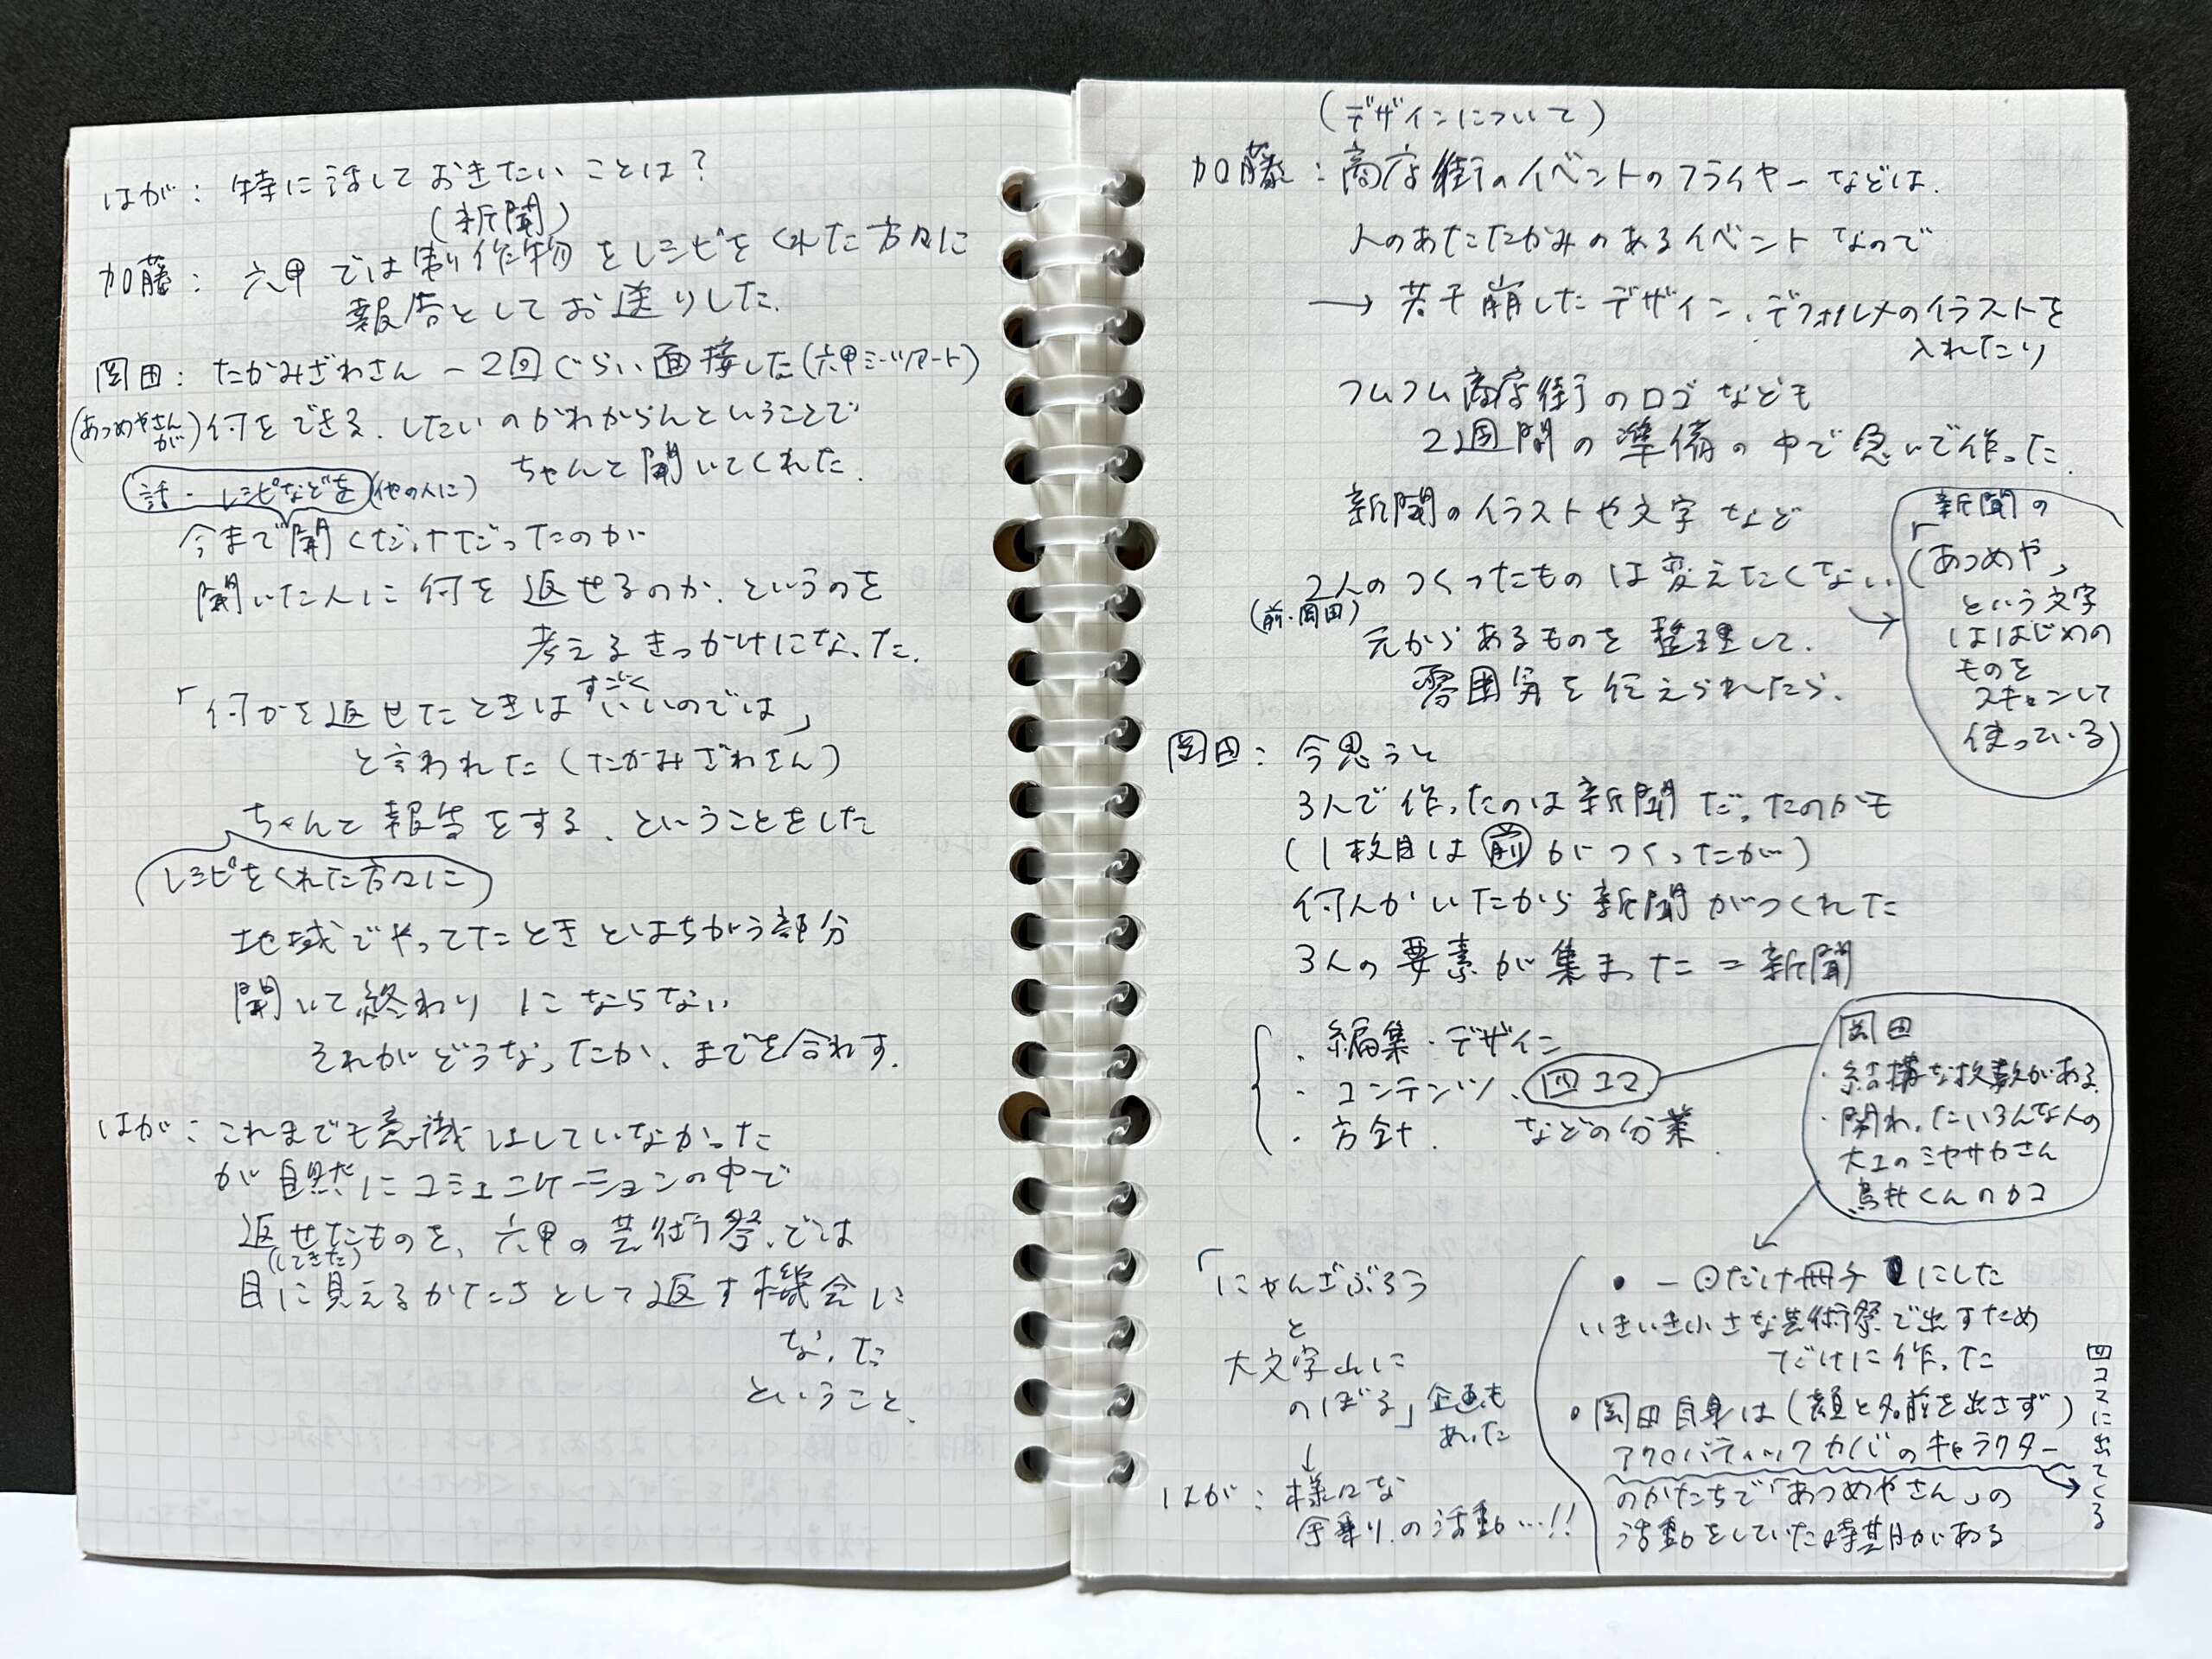 はが: 特に話しておきたいことは?
(新聞)
加藤: 六甲では制作物をレシピをくれた方々に
報告としてお送りした.
岡田: たかみざわさん - 2回ぐらい面接した(六甲ミーツアート)
(あつめやさんが)何をできる.したいのかわからんということで
ちゃんと聞いてくれた.
(話・レシピなどを)(他の人に)
今まで聞くだけだったのが
聞いた人に何を返せるのか.というのを
考えるきっかけになった.
「何かを返せたときはすごくいいのでは」
と言われた(たかみざわさん)
ちゃんと報告をする、ということをした
(レシピをくれた方々に)
地域でやってたときとはちがう部分
聞いて終わりにならない
それがどうなったか、までを合わす.
はが: これまでも意識はしていなかった
が自然にコミュニケーションの中で
返せたものを、六甲の芸術祭では
(してきた)
目に見えるかたちとして返す機会に
なった
ということ.
(デザインについて)
加藤: 商店街のイベントのフライヤーなどは.
人のあたたかみのあるイベントなので
→ 若干崩したデザイン、デフォルメのイラストを
入れたり
フムフム商店街のロゴなども
2週間の準備の中で急いで作った.
新聞のイラストや文字など
2人のつくったものは変えたくない.
(前・岡田)
元からあるものを整理して.
雰囲気を伝えられたら.
新聞の
(「あつめや」
という文字
ははじめの
ものを
スキャンして
使っている)
岡田: 今思うと
3人で作ったのは新聞だったのかも
(1枚目は前がつくったが)
何人かいたから新聞がつくれた
3人の要素が集まった=新聞
・編集・デザイン
・コンテンツ、四コマ
・方針. などの分業.
岡田
・結構な枚数がある.
・関わったいろんな人の
大工のミヤサカさん
鳥井くんのカコ
「にゃんざぶろう
と
大文字山に
のぼる」企画も
あった
↓
はが: 様々な
余乗りの活動…!!
• 一回だけ冊子にした
いきいき小さな芸術祭で出すため
だけに作った
• 岡田自身は(顔と名前を出さず)
アクロバティックカバのキャラクター
のかたちで「あつめやさん」の
活動をしていた時期がある
→ 四コマに出てくる